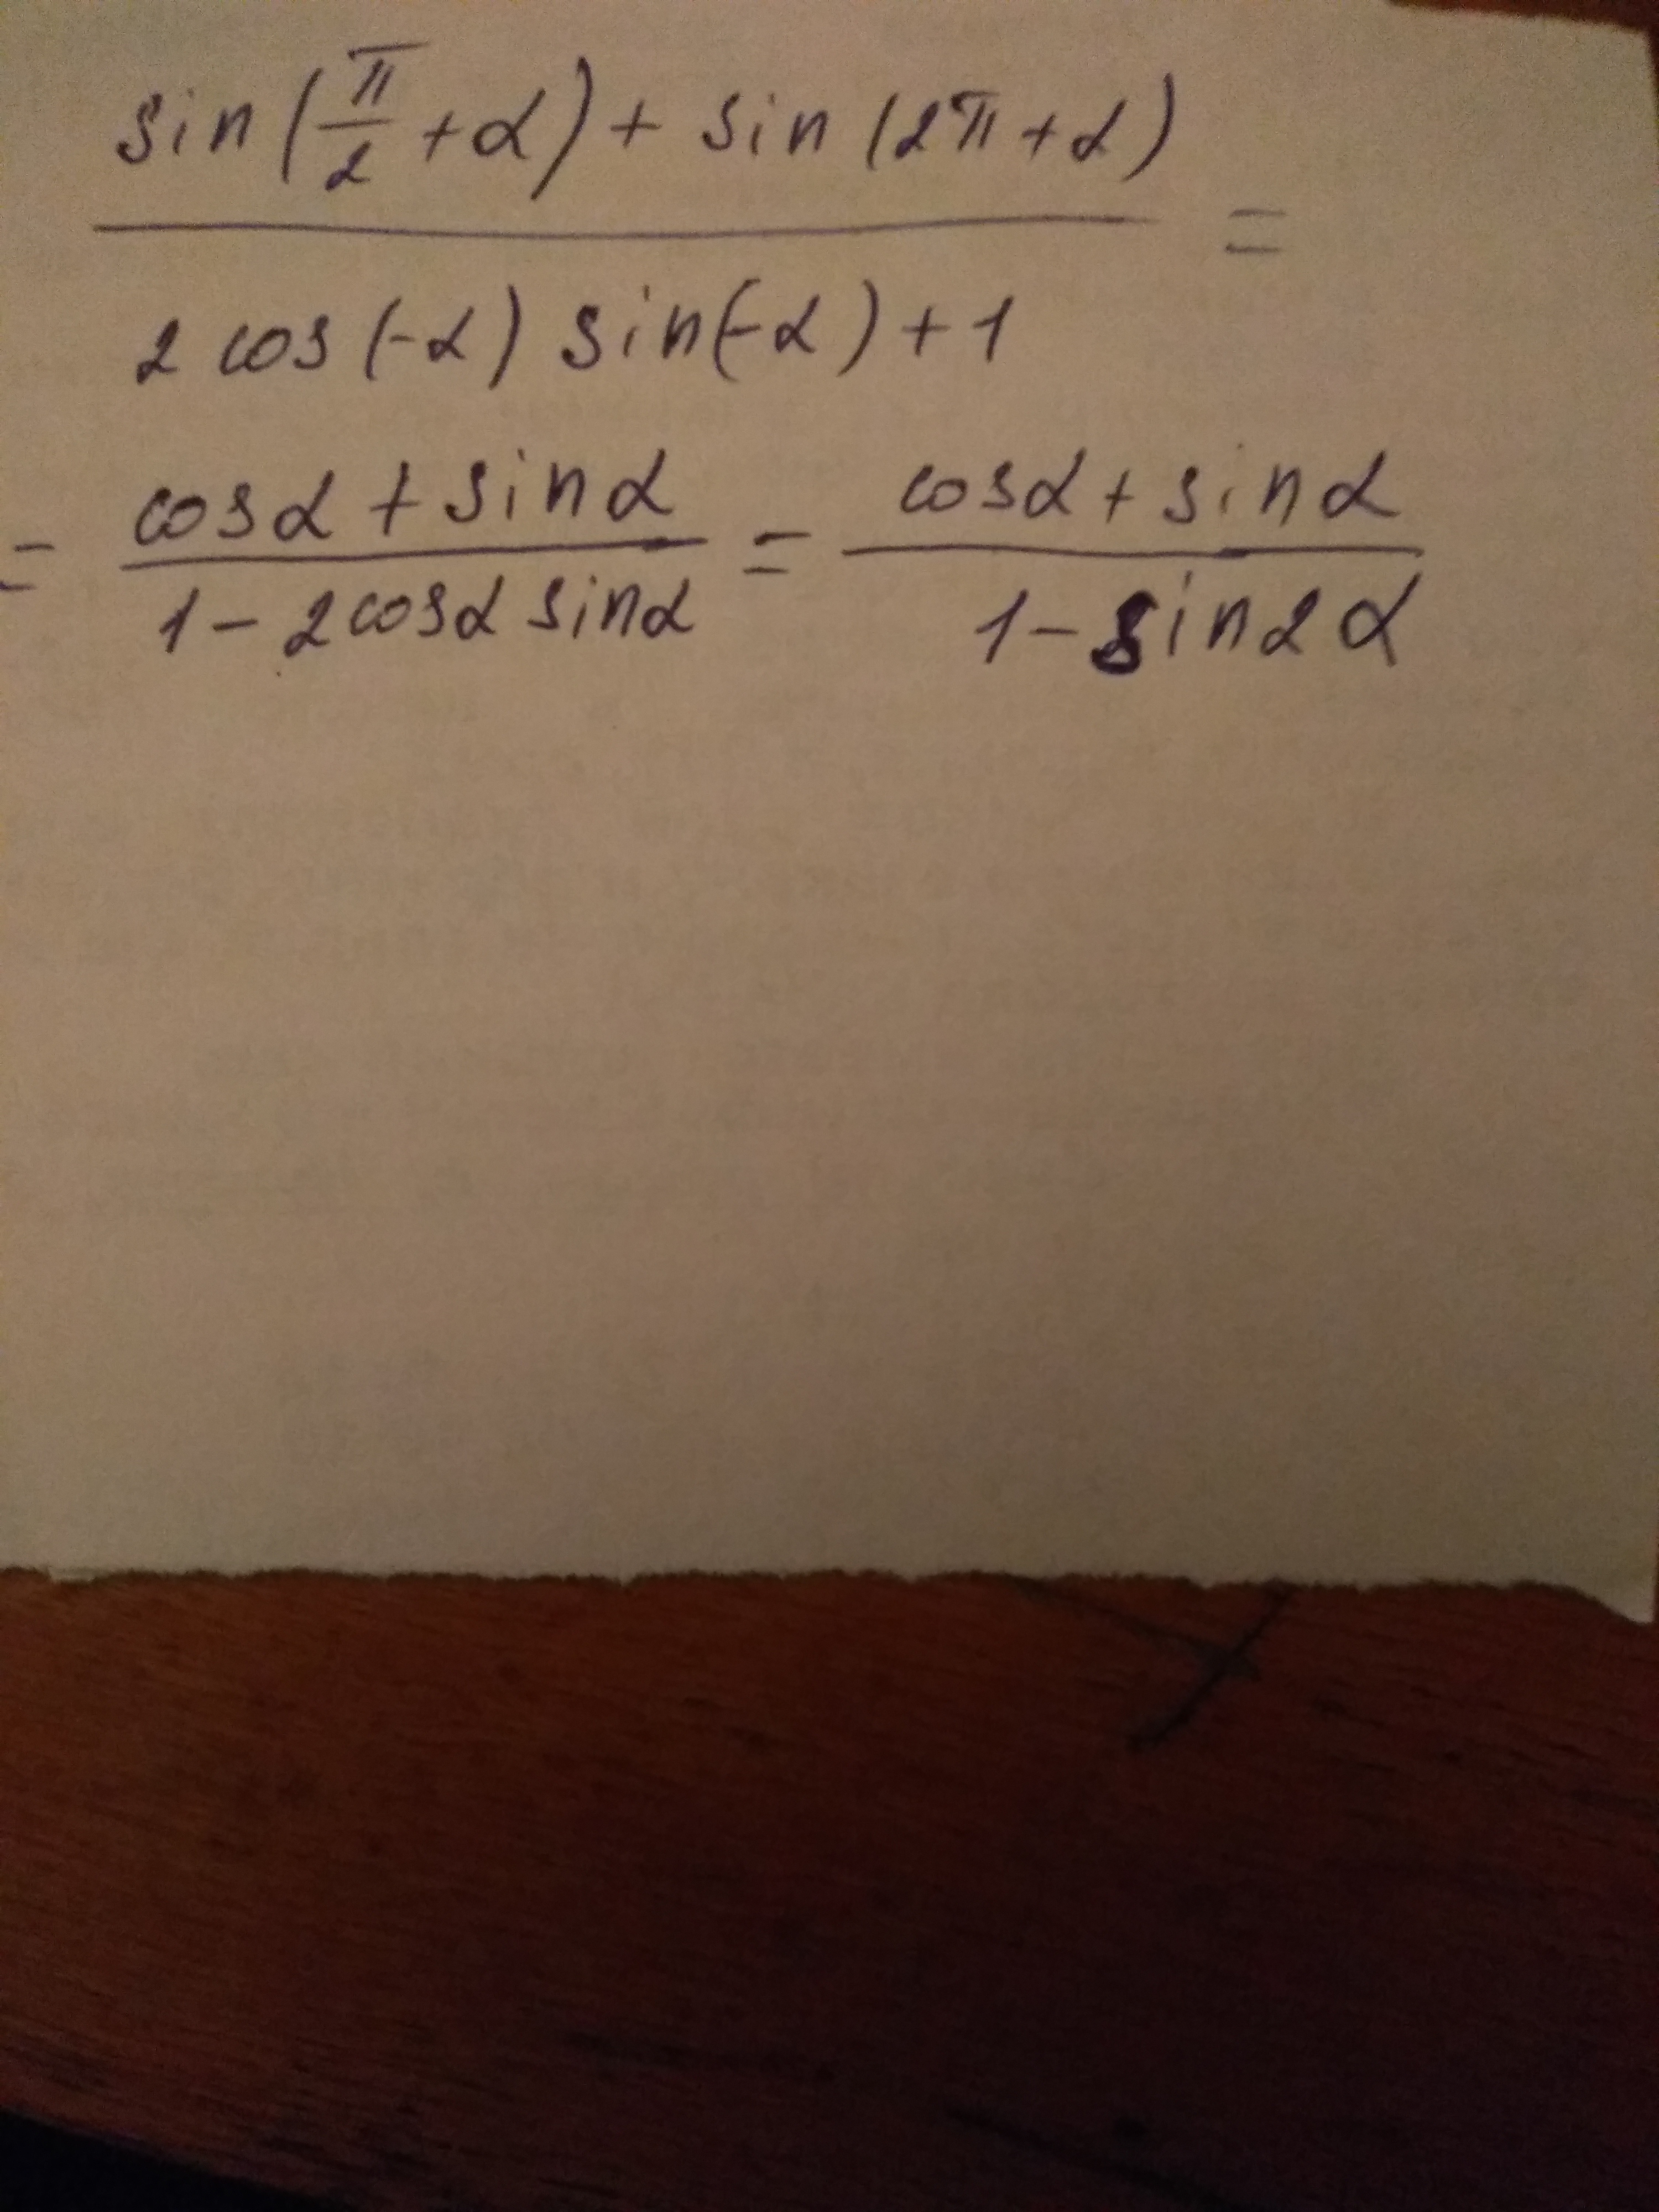 sin(π/2 + α) + sin(2π + α)
=
2 cos(-α) sin(-α) + 1
= cosα + sinα = cosα + sinα
1 - 2cosα sinα 1 - sin2α